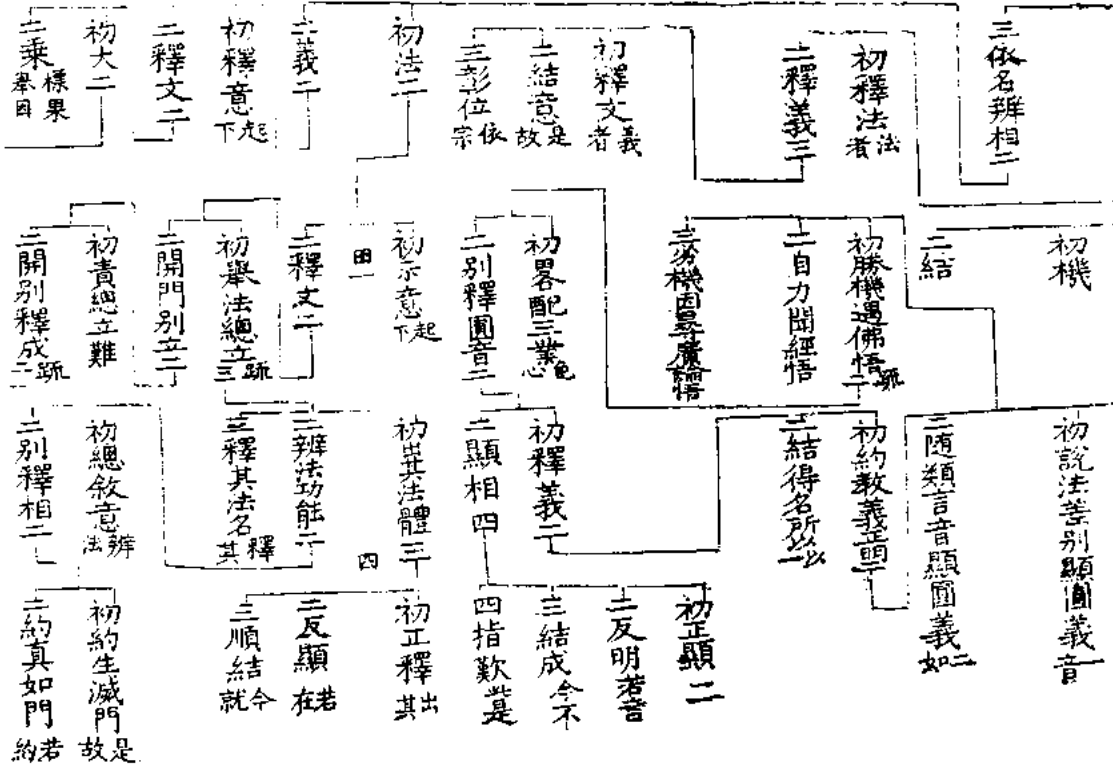 三依名辨相二
初釋法 法者
二釋義三
初釋文 義者
二結意 是故
三彰位 依宗
初法二
二義二
初釋意 起下
二釋文二
初大二
二乘 標果舉因
初機
二結
初勝機遇佛悟 疏二
二自力聞經悟
三劣機因尋廣論悟
初畧配三業 色心
二別釋圓音二
初示意 起下
二釋文二
初舉法總立 疏三
二開門別立二
初責總立難
二開別釋成 疏二
初說法差別顯圓義 音一
二随類言音顯圓義 二如
初約教義正明二
二結得名所以 以一
初釋義二
二顯相四
初出其法體三
二辨法功能二
三釋其法名 釋其
初總敘意 辨法
二別釋相二
初正顯二
二反明 若音
三結成 今不
四指歎 是
初正釋 出其
二反顯 若在
三順結 今就
初約生滅門 是故
二約真如門 若約
四一
四